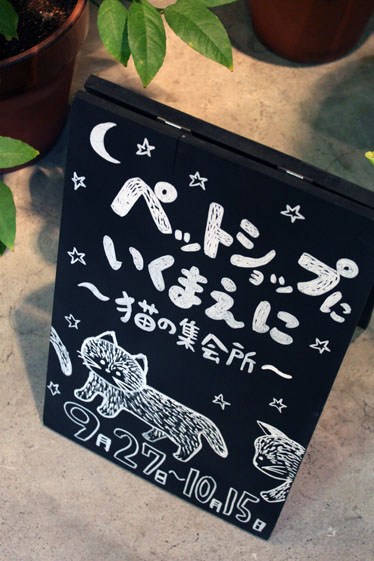 ペットショップに
いくまえに
～猫の集会所～
9月27日～10月15日